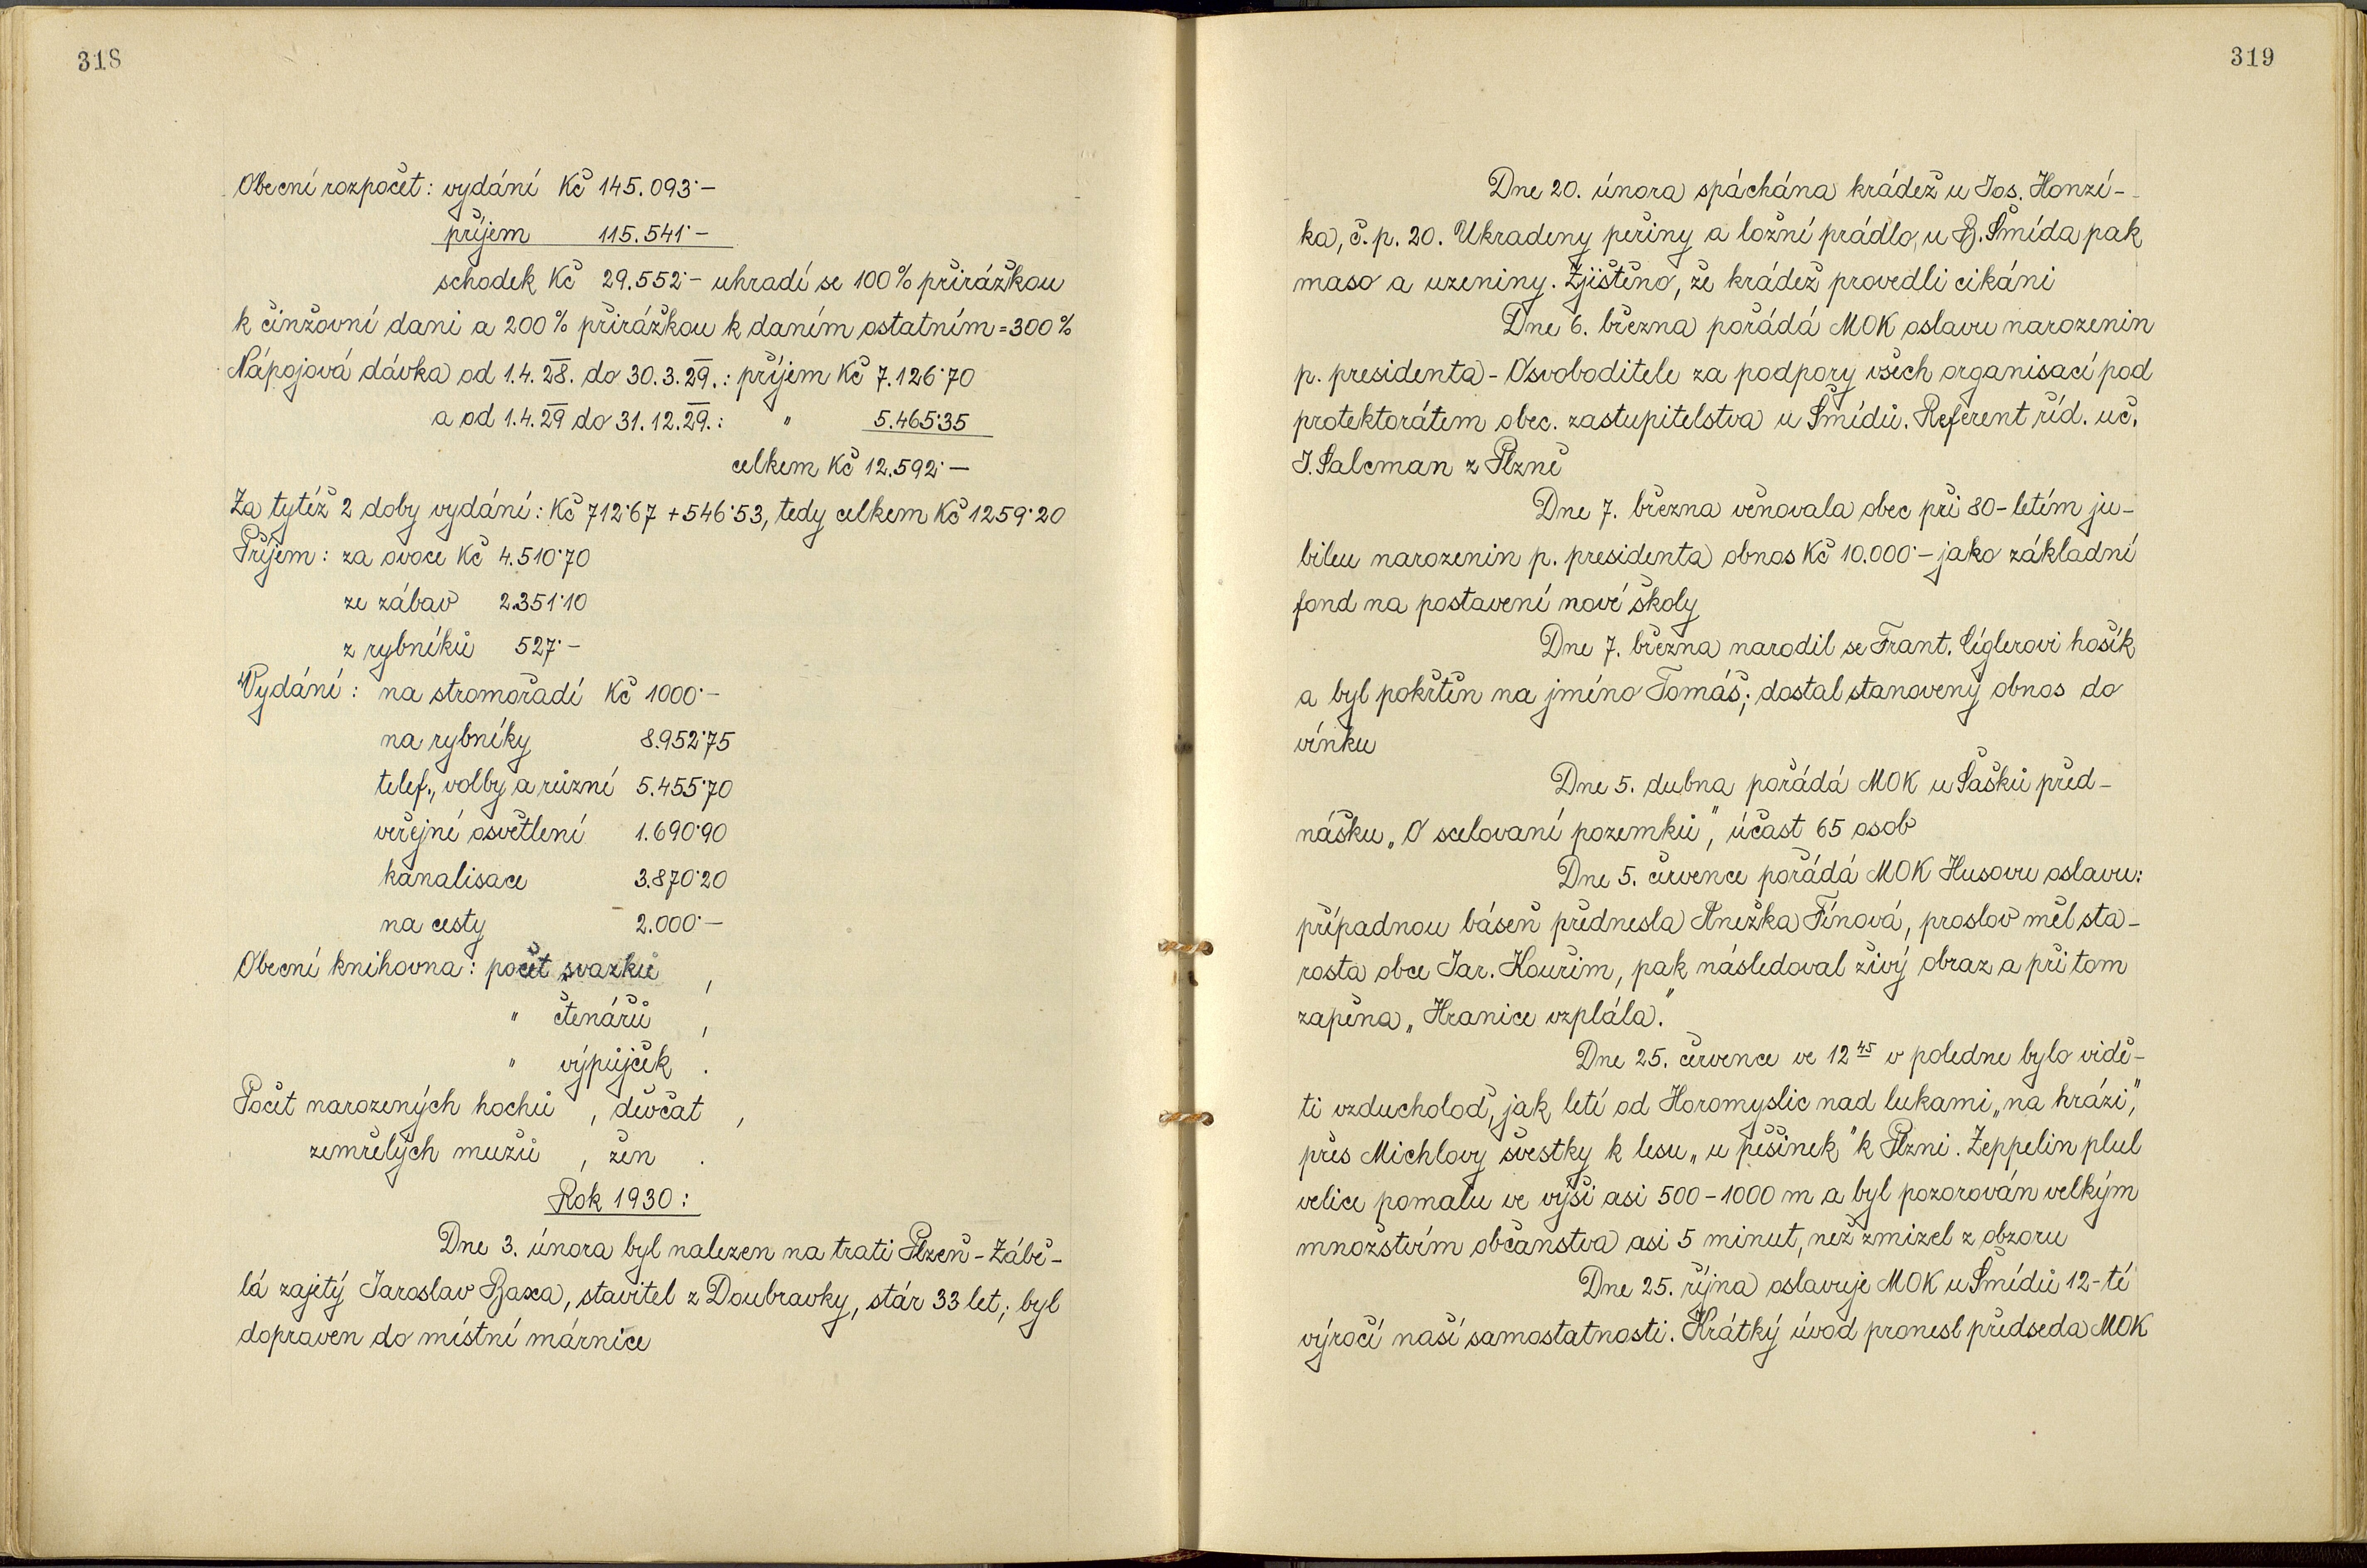 318
Obecní rozpočet: vydání Kč 145.093·–
příjem 115.541·–
schodek Kč 29.552·– uhradí se 100% přirážkou
k činžovní dani a 200% přirážkou k daním ostatním = 300%
Nápojová dávka od 1.4.28. do 30.3.29.: příjem Kč 7.126·70
a od 1.4.29 do 31.12.29.: " 5.465·35
celkem Kč 12.592·–
Za tytéž 2 doby vydání: Kč 712·67 + 546·53, tedy celkem Kč 1259·20
Příjem: za ovoce Kč 4.510·70
ze zábav 2.351·10
z rybníků 527·–
Vydání: na stromořadí Kč 1000·–
na rybníky 8.952·75
telef., volby a různé 5.455·70
veřejné osvětlení 1.690·90
kanalisace 3.870·20
na cesty 2.000·–
Obecní knihovna: počet svazků ,
" čtenářů ,
" výpůjček .
Počet narozených hochů , děvčat ,
zemřelých mužů , žen .
Rok 1930:
Dne 3. února byl nalezen na trati Plzeň - Zábě-
lá zajetý Jaroslav Baxa, stavitel z Doubravky, stár 33 let; byl
dopraven do místní márnice
319
Dne 20. února spáchána krádež u Jos. Honzí-
ka, č.p. 20. Ukradeny peřiny a ložní prádlo, u B. Šmída pak
maso a uzeniny. Zjištěno, že krádež provedli cikáni
Dne 6. března pořádá MOK oslavu narozenin
p. presidenta - Osvoboditele za podpory všech organisací pod
protektorátem obec. zastupitelstva u Šmídů. Referent říd. uč.
J. Salcman z Plzně
Dne 7. března věnovala obec při 80-letém ju-
bileu narozenin p. presidenta obnos Kč 10.000·– jako základní
fond na postavení nové školy
Dne 7. března narodil se Frant. Cíglerovi hošík
a byl pokřtěn na jméno Tomáš; dostal stanovený obnos do
vínku
Dne 5. dubna pořádá MOK u Sašků před-
nášku „O scelovaní pozemků", účast 65 osob
Dne 5. července pořádá MOK Husovu oslavu:
případnou báseň přednesla Anežka Fínová, proslov měl sta-
rosta obce Jar. Kouřim, pak následoval živý obraz a při tom
zapěna „Hranice vzplála."
Dne 25. července ve 12 45 v poledne bylo vidě-
ti vzducholoď, jak letí od Horomyslic nad lukami „na hrázi",
přes Michlovy švestky k lesu „u pěšinek" k Plzni. Zeppelin plul
velice pomalu ve výši asi 500 - 1000 m a byl pozorován velkým
množstvím občanstva asi 5 minut, než zmizel z obzoru
Dne 25. října oslavuje MOK u Šmídů 12-té
výročí naší samostatnosti. Krátký úvod pronesl předseda MOK